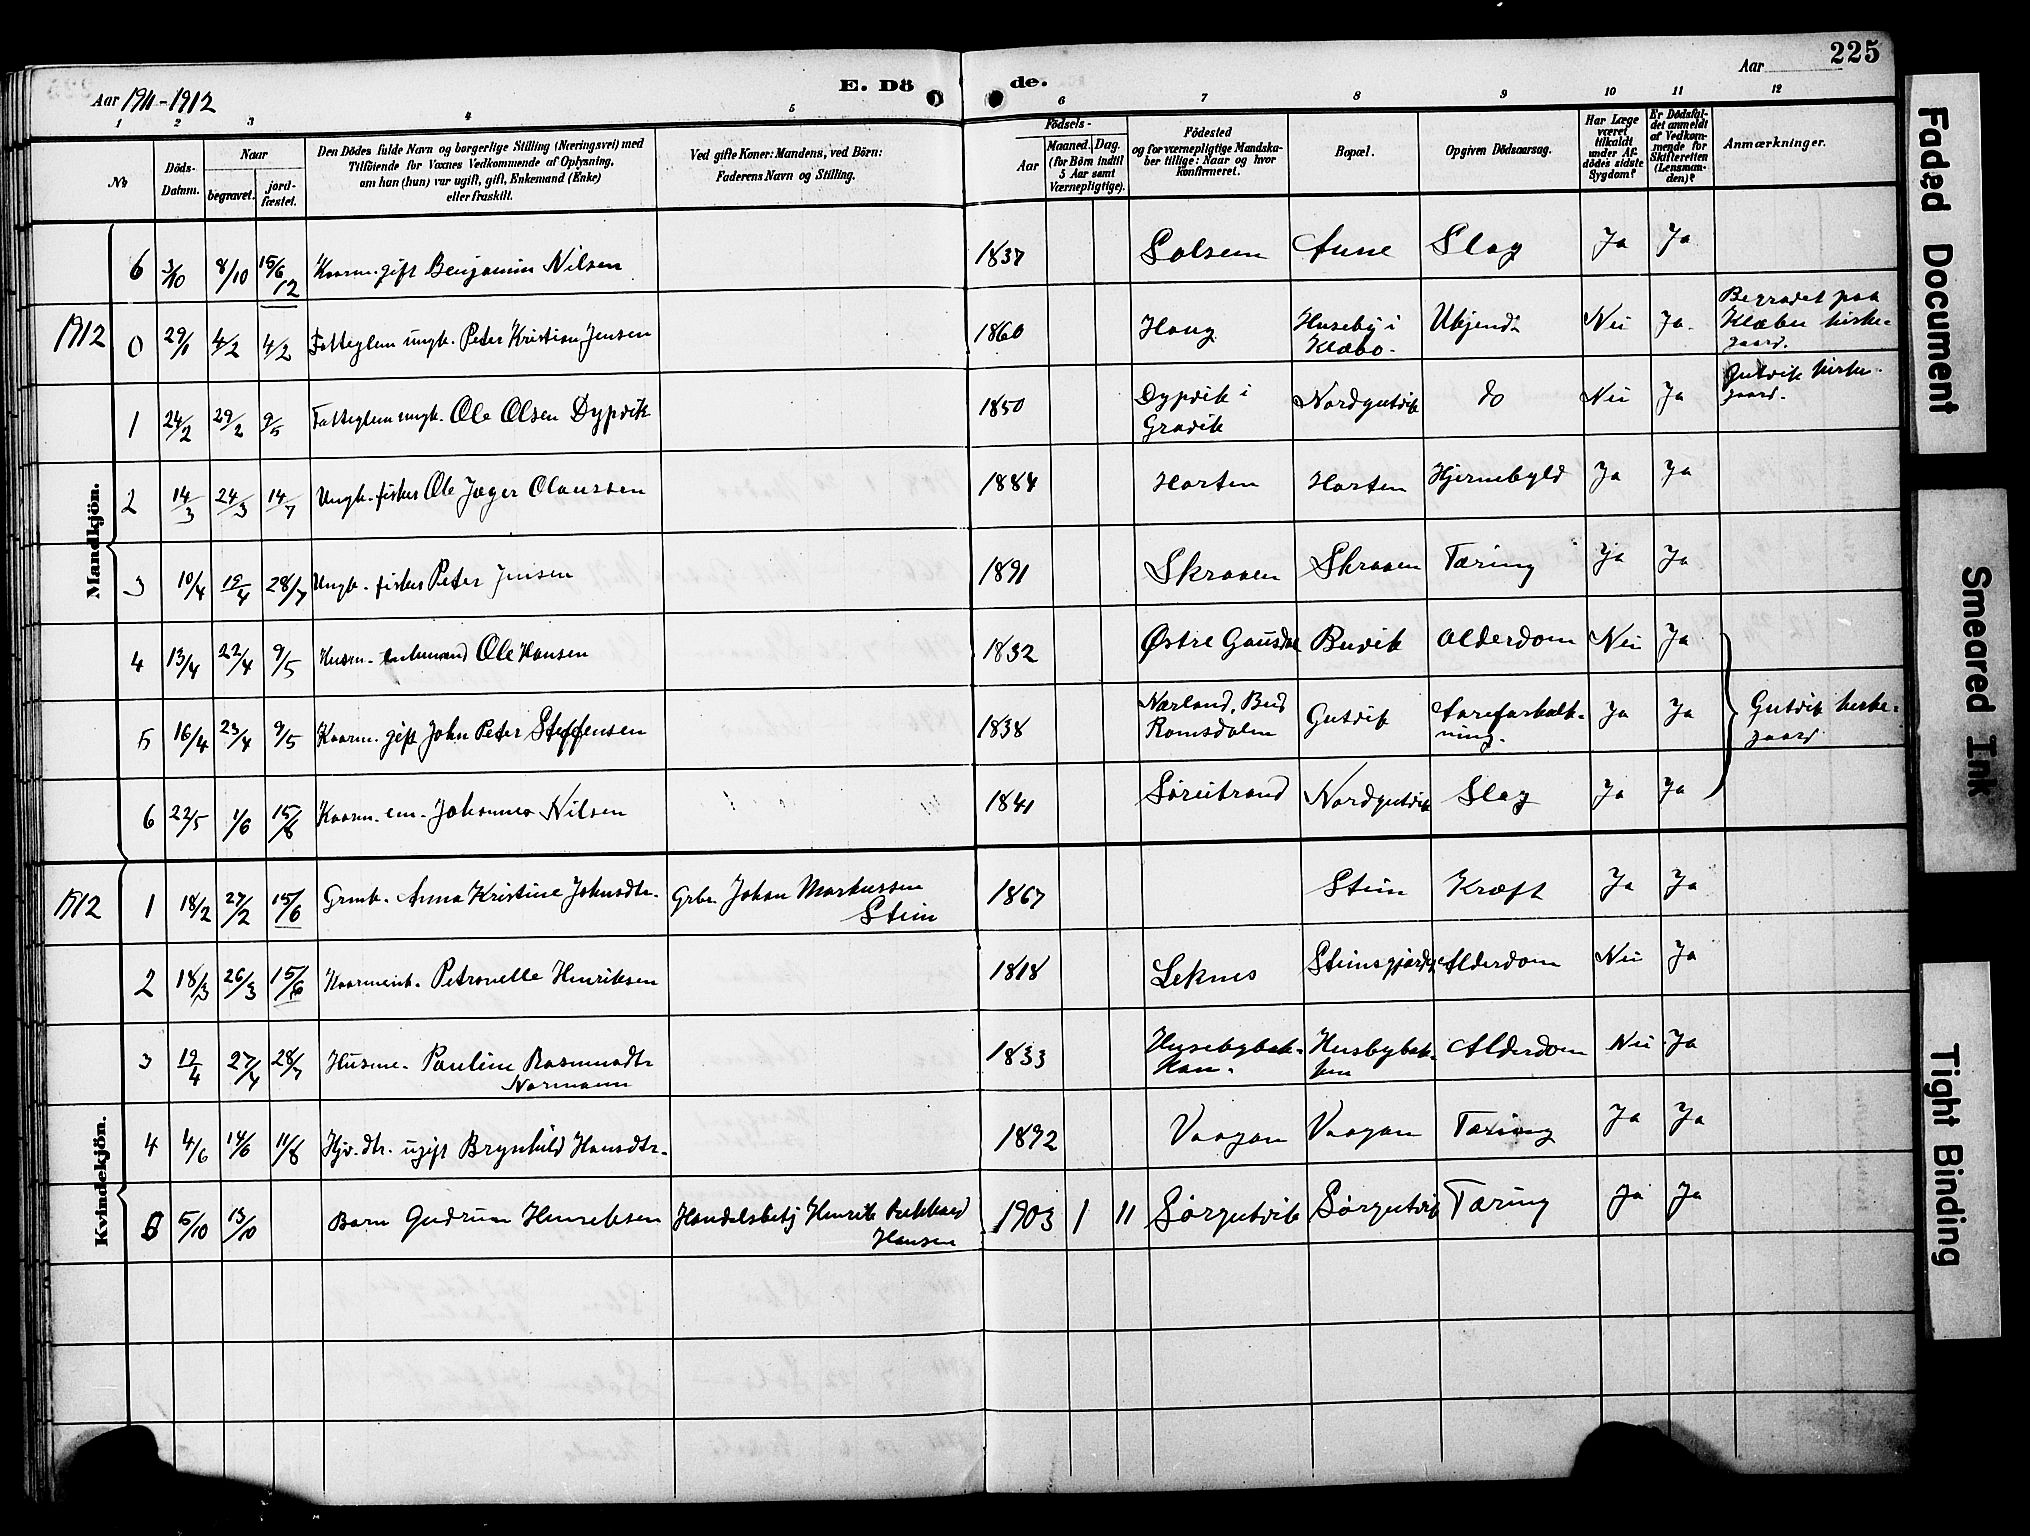 225
E. Dö de.
Aar 1911-1912
Aar
1 2 3 4 5 6 7 8 9 10 11 12
No
Döds-Datum.
Naar
begravet.
jord-fæstet.
Den Dödes fulde Navn og borgerlige Stilling (Næringsvei) med
Tilföiende for Voxnes Vedkommende af Oplysning,
om han (hun) var ugift, gift, Enkemand (Enke)
eller fraskilt.
Ved gifte Koner: Mandens, ved Börn:
Faderens Navn og Stilling.
Födsels-
Aar
Maaned. Dag.
(for Börn indtil
5 Aar samt
Værnepligtige).
Födested
og for værnepligtige Mandska-
ber tillige: Naar og hvor
konfirmeret.
Bopæl.
Opgiven Dödsaarsag.
Har Læge
været
tilkaldt
under Af-
dödes sidste
Sygdom?
Er Dödsfal-
det anmeldt
af Vedkom-
mende for
Skifteretten
(Lensman-
den)?
Anmærkninger.
Mandkjön.
6 3/10 8/10 15/6 12 Kaarm. gift Benjamin Nilsen 1837 Solsem Aune Slag Ja Ja
1912 0 29/1 4/2 4/2 Fattiglem ungk. Peter Kristian Jensen 1860 Haug Huseby i Klæbo. Ukjendt Nei Ja Begravet paa Klæbu kirkegaard.
1 24/2 29/2 9/5 Fattiglem ungk. Ole Olsen Dypvik 1850 Dypvik i Gravik Nordgutvik do Nei Ja Gutvik kirkegaard.
2 14/3 24/3 14/7 Ungk. fisker Ole Jæger Olaussen 1884 Horten Horten Hjernebyld Ja Ja
3 10/4 19/4 28/7 Ungk. fisker Peter Jensen 1891 Skraaen Skraaen Tæring Ja Ja
4 13/4 22/4 9/5 Husm. enkemand Ole Hansen 1832 Østre Gausdal Buvik Alderdom Nei Ja
5 16/4 23/4 9/5 Kaarm. gift John Peter Steffensen 1838 Nærland, Bud Romsdalen Gutvik Aareforkalkning. Ja Ja Gutvik kirkegaard
6 22/5 1/6 15/8 Kaarm. em. Johannes Nilsen 1841 Søreistrand Nordgutvik Slag Ja Ja
Kvindekjön.
1912 1 18/2 27/2 15/6 Grmk. Anna Kristine Johnsdtr. Grbr. Johan Markussen Stein 1867 Stein Kræft Ja Ja
2 18/3 26/3 15/6 Kaarmenk. Petronelle Henriksen 1818 Leknes Steinsgjærdet Alderdom Nei Ja
3 19/4 27/4 28/7 Husme. Pauline Rasmusdtr Normann 1833 Husebybakkan. Husbybakken Alderdom Nei Ja
4 4/6 14/6 11/8 Hjv. dtr. ugift Brynhild Hansdtr. 1892 Vaagan Vaagan Tæring Ja Ja
5 5/10 13/10 Barn Gudrun Henriksen Handelsbetj Henrik Hansen 1903 1 11 Sørgutvik Sørgutvik Tæring Ja Ja
Faded Document
Smeared Ink
Tight Binding